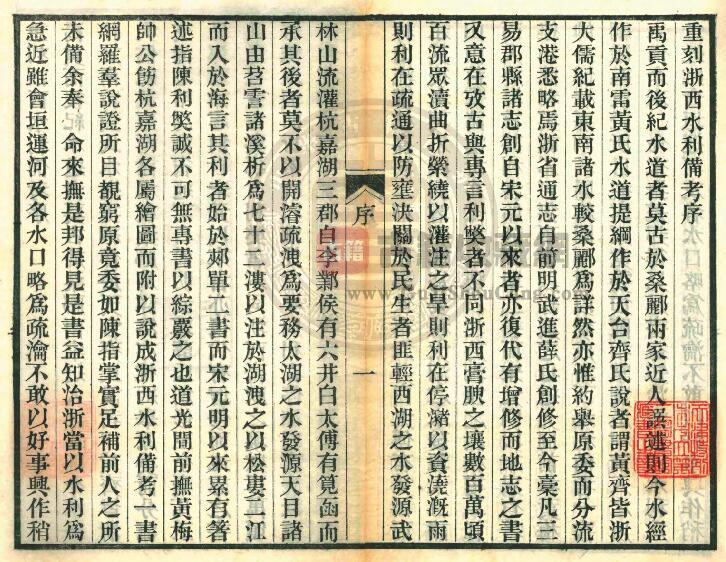 重刻浙西水利備考序
禹貢而後紀水道者莫古於桑酈兩家近人譔述則今水經
作於南雷黃氏水道提綱作於天台齊氏說者謂黃齊皆浙
大儒紀載東南諸水較桑酈爲詳然亦惟約舉原委而分流
支港悉略焉浙省通志自前明武進薛氏創修至今毫凡三
易郡縣諸志創自宋元以來者亦復代有增修而地志之書
又意在攷古與專言利獘者不同浙西膏腴之壤數百萬頃
百流眾瀆曲折縈繞以灌注之旱則利在停瀦以資澆漑雨
則利在疏通以防壅決關於民生者匪輕西湖之水發源武
序
一
林山流灌杭嘉湖三郡自李鄴侯有六井白太傅有筧函而
承其後者莫不以開濬疏洩爲要務太湖之水發源天目諸
山由苕霅諸溪析爲七十二漊以注於湖洩之以松婁三江
而入於海言其利者始於郟單二書而宋元明以來累有著
述指陳利獘誠不可無專書以綜覈之也道光間前撫黃梅
帥公飭杭嘉湖各屬繪圖而附以說成浙西水利備考一書
網羅羣說證所目覩窮原竟委如陳指掌實足補前人之所
未備余奉
命來撫是邦得見是書益知治浙當以水利爲
急近雖會垣運河及各水口略爲疏瀹不敢以好事興作稍